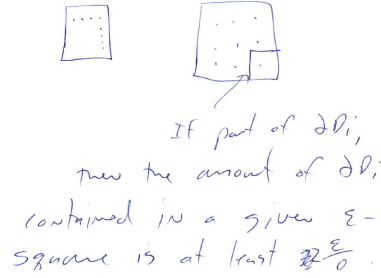 If part of ∂Di,
then the amount of ∂Di
contained in a given ε-
square is at least ε/